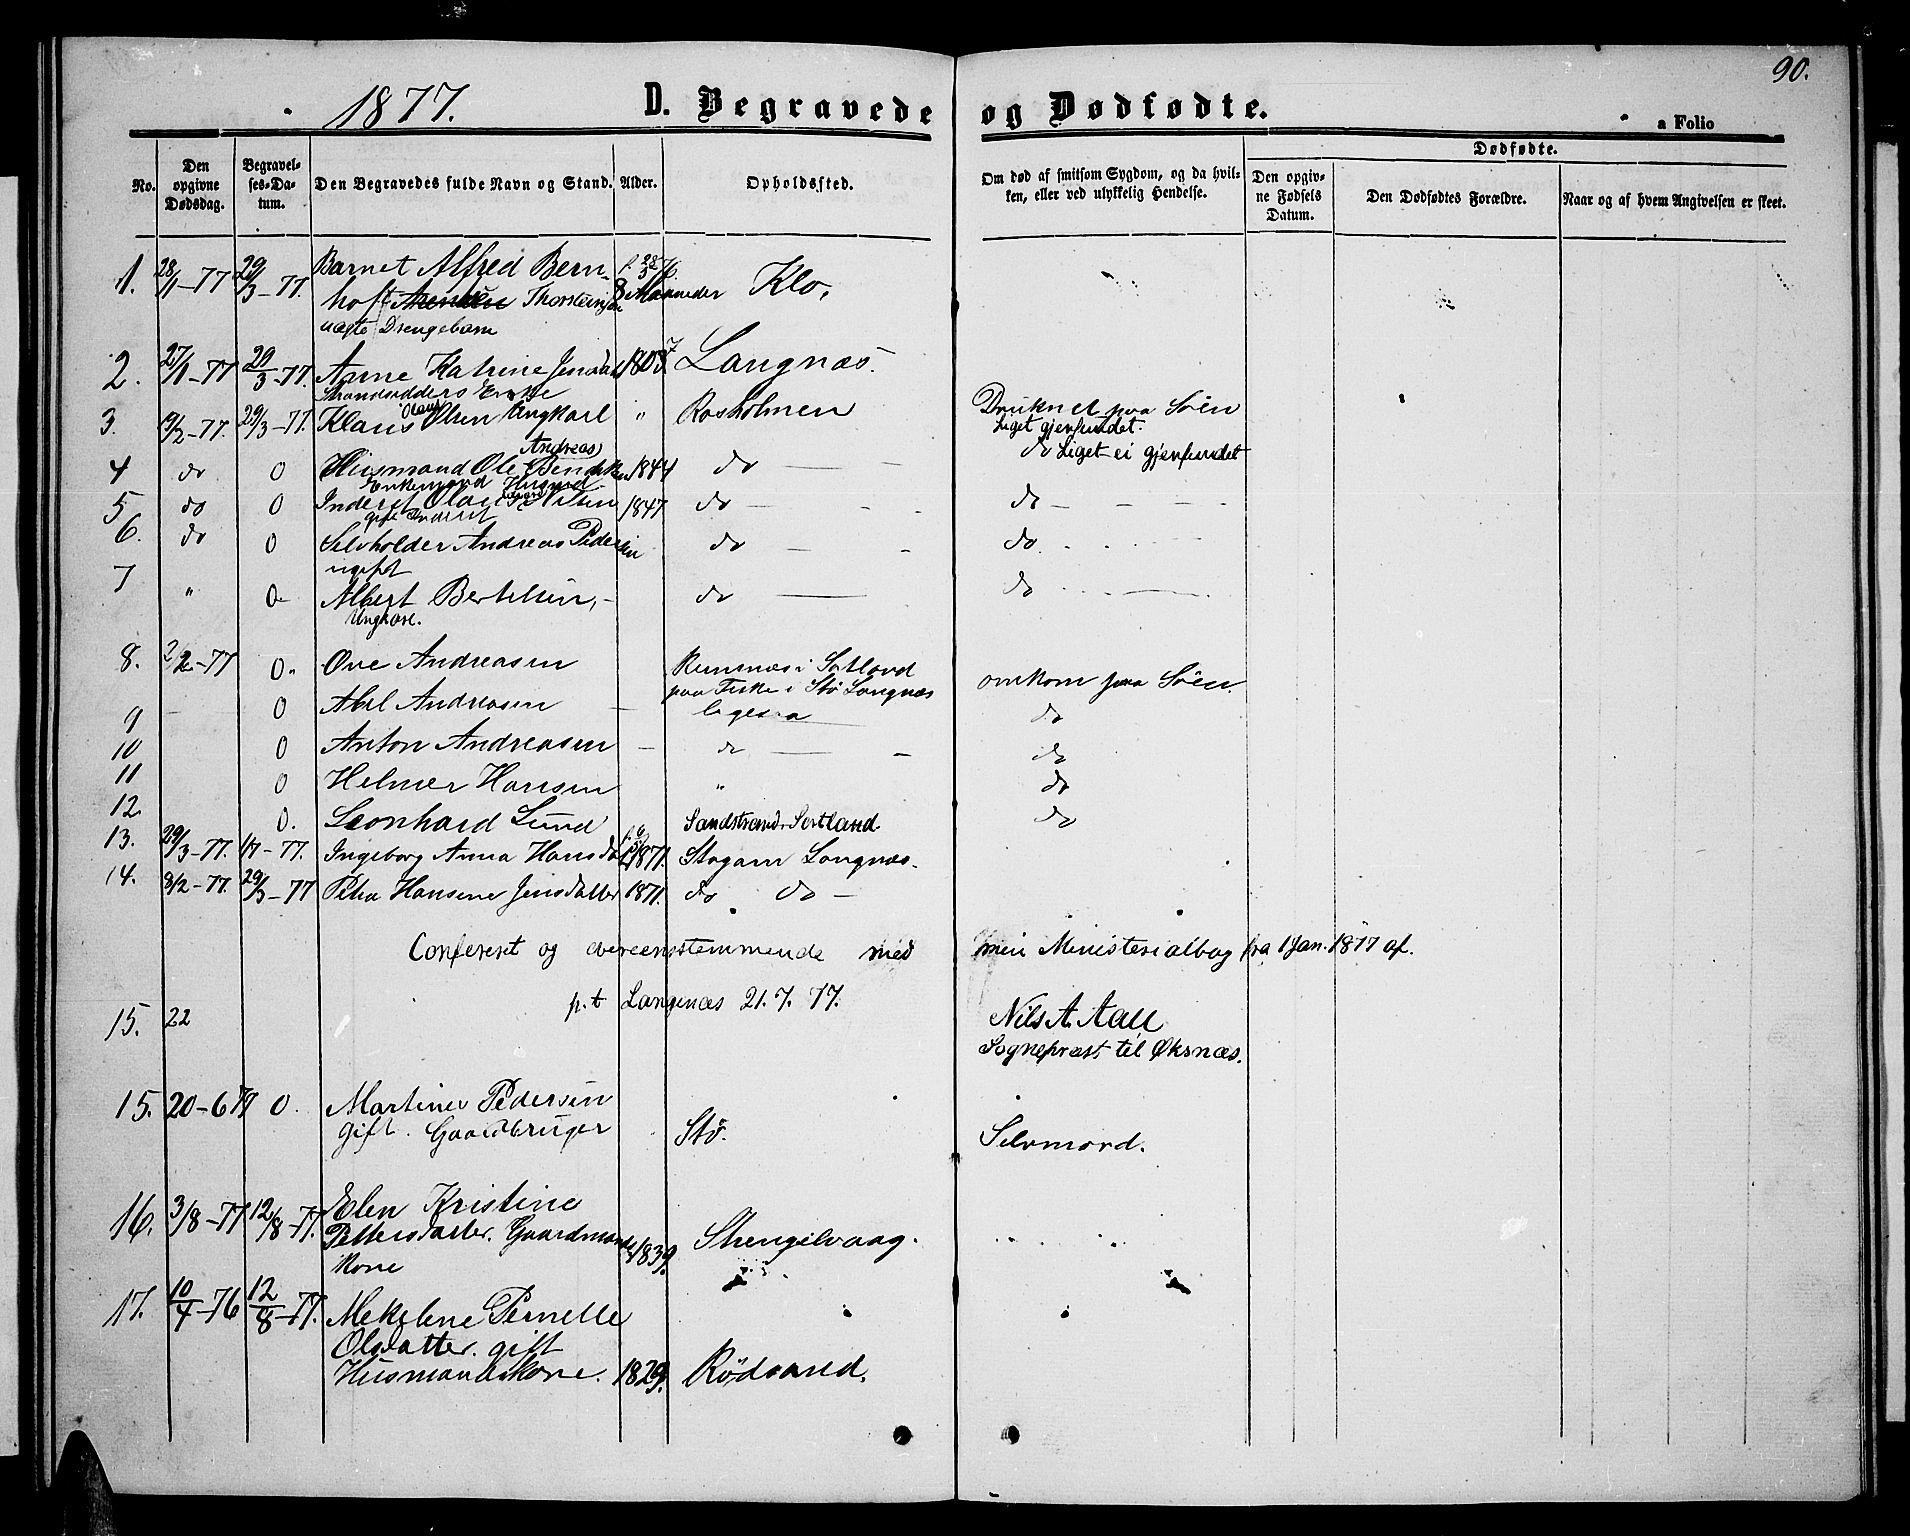 90.
1877. D. Begravede og Dødfødte.
a Folio
No. Den opgivne Dødsdag. Begravelses-Datum. Den Begravedes fulde Navn og Stand. Alder. Opholdssted. Om død af smitsom Sygdom, og da hvilken, eller ved ulykkelig Hendelse. Dødfødte. Den opgivne Fødsels Datum. Den Dødfødtes Forældre. Naar og af hvem Angivelsen er skeet.
1. 28/1-77 29/3-77. Barnet Alfred Bern- f. 28/3 76.
hoft Thorsteinsen 8 Maaneder Klo.
uægte Drengebarn
2. 27/1-77 29/3-77. Anne Katrine Jensdat 1803 Langnæs.
Strandsidders Enke
3. 9/2-77. 29/3-77. Klaus Olaus Olsen Ungkarl " Rosholmen Druknet paa Söen
Liget gjenfundet.
4 do 0 Husmand Ole Andreas Bendiksen 1844 do — — do Liget ei gjenfundet
Enkemand Husmd
5 do 0 Inderst Olai Nilsen 1847 do — - - do — - -
gift Inderst
6. do 0 Selvholder Andreas Pedersen do — - do.
ugift
7 " 0 Albert Bertelsen, - do — do
Ungkare.
8. 2/2-77 0. Ove Andreasen Rennæs i Sortland
paa Fiske i Stø Langnæs omkom paa Söen.
9 0 Abel Andreasen — ligesaa do
10 0 Anton Andreasen — do — - do
11 0 Helmer Hansen " do
12. 0. Leonhard Lund Sandstrand. Sortland. do
13. 29/3-77. 1/7-77. Ingeborg Anna Hansda 1871. Skogam Langnæs.
14. 8/2-77. 29/3-77 Petra Hansene Jensdatter 1871. do do —
Confereret og overensstemmende med min Ministerialbog fra 1 Jan. 1877 af.
p.t Langenæs 21.7.77.
15. 22 Nils A. Aall
Sognepræst til Øksnæs.
15. 20-6 77 0. Martines Pedersen
gift. Gaardbruger Stö. Selvmord.
16. 3/8-77 12/8-77. Elen Kristine
Pettersdatter. Gaardmands 1839. Strengelvaag.
Kone
17. 10/4-76 12/8-77. Mekelene Pernelle
Olsdatter. gift
Husmandskone. 1829. Rödsand.